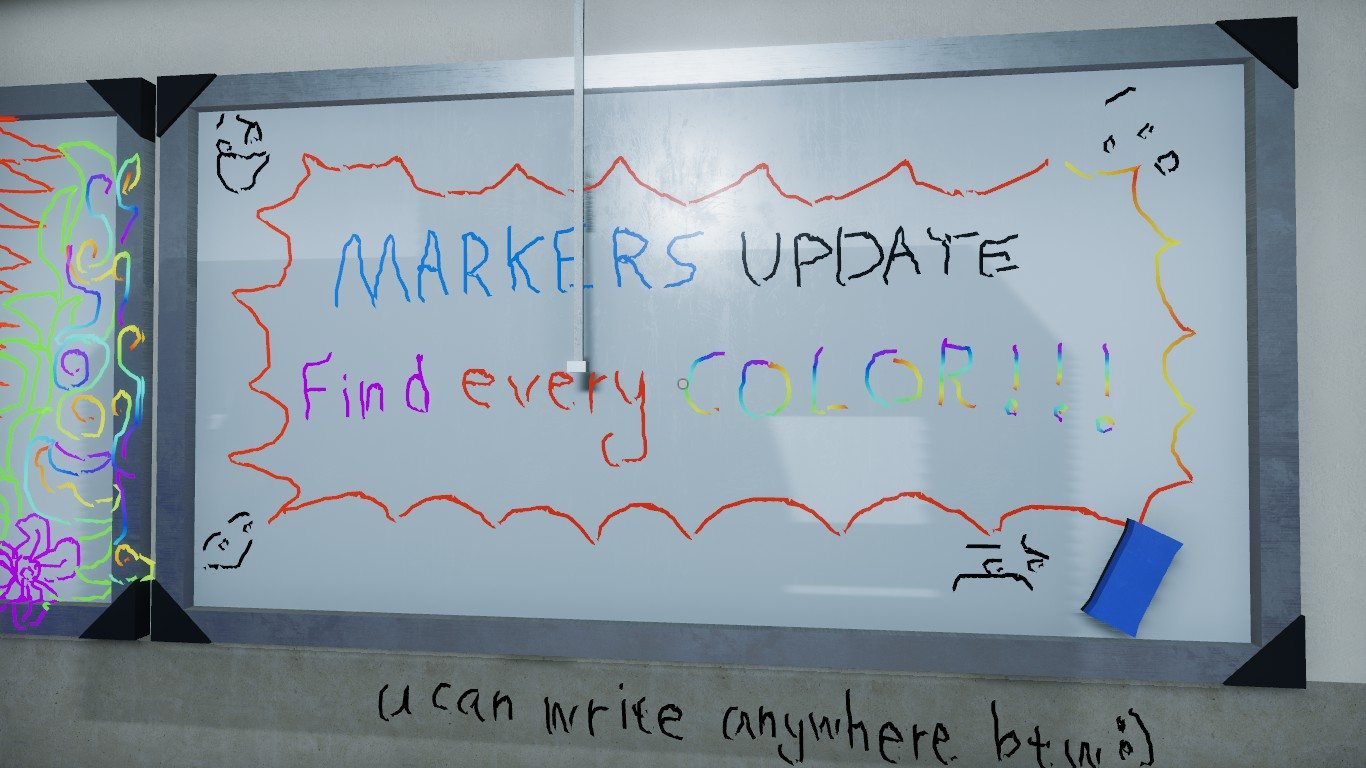 MARKERS UPDATE
Find every COLOR!!!
(u can write anywhere btw :)